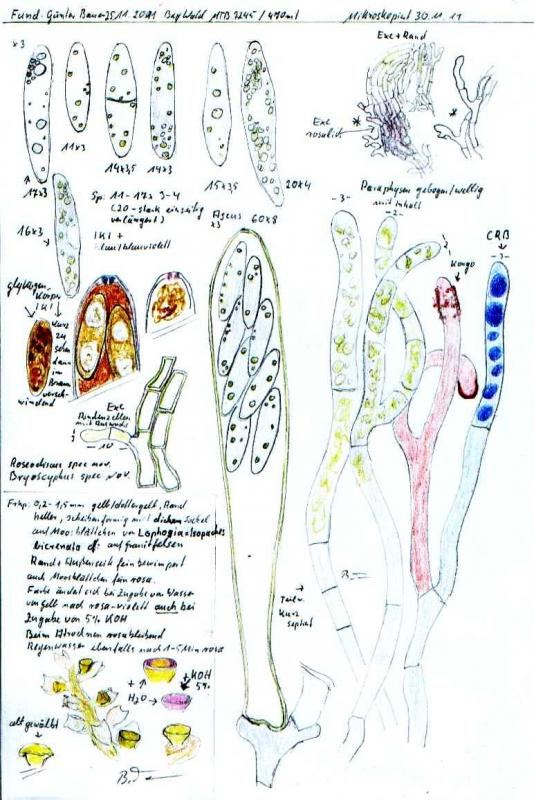 Fund: Günter Bauer 25.11.2011 BayWald MTB 7245 / 470ml Mikroskopiert 30.11.11
x3
Exc+Rand
Exc
rosalich
17x3
11x3
14x3,5
14x3
15x3,5
20x4
Sp: 11-17x3-4
(20 - stark einseitig
verlängert)
IKI +
blau/blauviolett
16x3
Ascus 60x8
x3
Paraphysen gebogen/wellig
mit Inhalt
-3-
-2-
CRB
-3-
Kongo
glykogen-
Körper
IKI
kurz
zu
sehen
dann
im
Braun
versch-
windend
Exc
Rindenzellen
mit Auswuchs
-10-
Roseodiscus spec nov.
Bryoscyphus spec nov.
Frkp: 0,2-1,5mm gelb/dottergelb, Rand
heller, scheibenförmig mit dickem Sockel
auf Moosblättchen von Lophozia=Isopaches
bicrenata cf. auf Granitfelsen
Rand+Außenseite fein bewimpert
auch Moosblättchen fein rosa.
Farbe ändert sich bei Zugabe von Wasser
von gelb nach rosa-violett auch bei
Zugabe von 5% KOH
Beim Abtrocknen rosableibend
Regenwasser ebenfalls nach 1-5 Min rosa
Teilw.
kurz
septiert
+KOH
5%
H2O
alt gewölbt